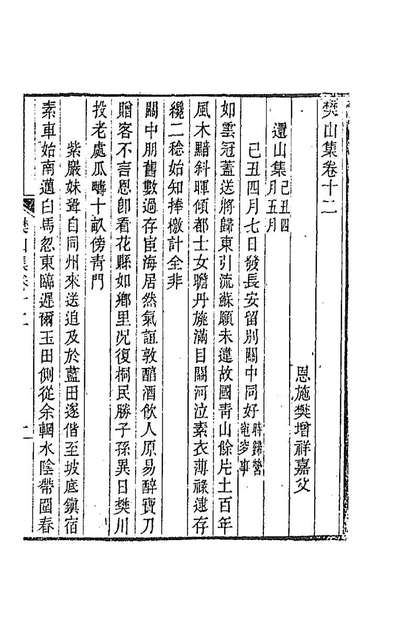 樊山集卷十二
恩施樊增祥嘉父
還山集己丑四月五月
己丑四月七日發長安留別關中同好時歸營窀穸事
如雲冠蓋送將歸東引流蘇願未違故國青山餘片土百年
風木黯斜暉傾都士女瞻丹旐滿目關河泣素衣薄祿逮存
纔二稔始知捧檄計全非
關中朋舊數過存宦海居然氣誼敦醑酒飲人原易醉寶刀
贈客不言恩卽看花縣如鄉里況復桐民勝子孫異日樊川
投老處瓜疇十畝傍青門
紫嚴妹聟自同州來送追及於藍田遂偕至坡底鎮宿
素車始南邁白馬忽東臨遲爾玉田側從余輞水陰帶圍春
樊山集卷十二
一